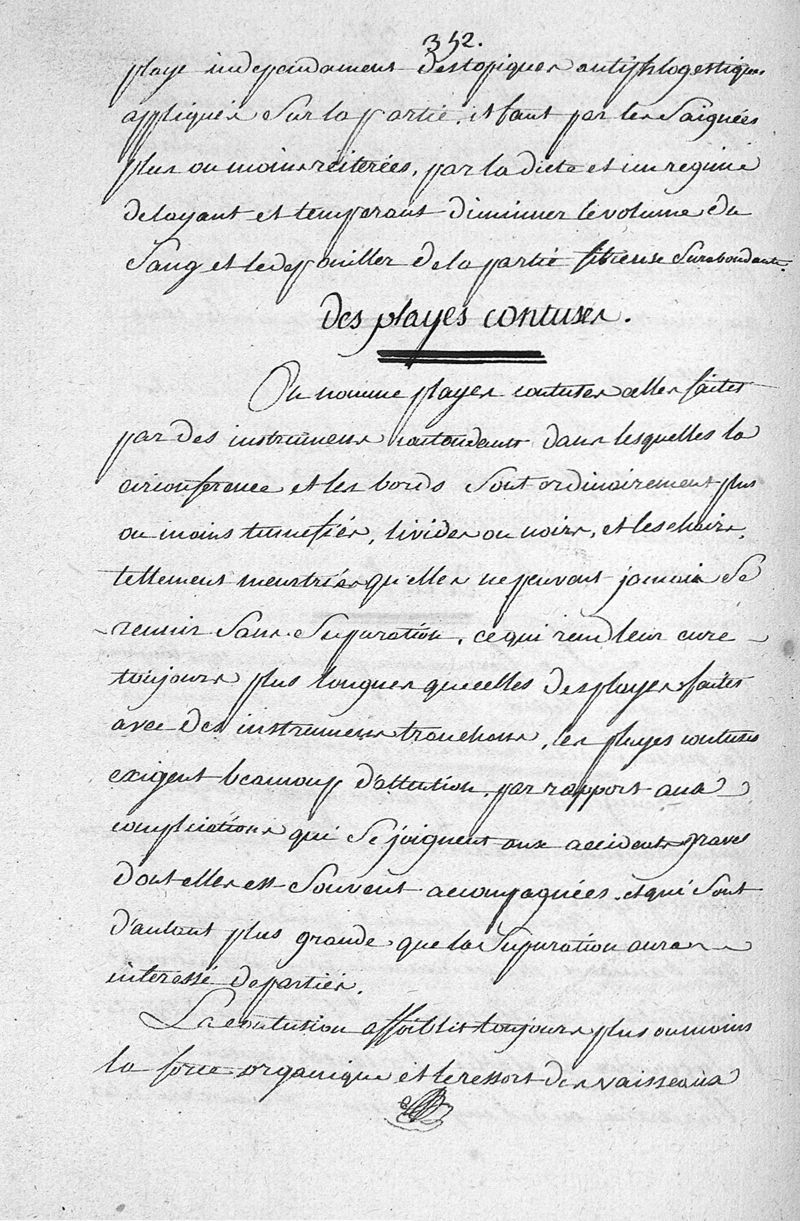 342.
playe independament des topiques antiphlogestiques
appliqués Sur la partie, il faut par les Saignées
plus ou moins réiterées, par la diete et un regime
delayant et temperant diminuer le volume du
Sang et le depouiller de la partie fibreuse Surabondante.
des playes contuses.
On nomme playes contuses celles faites
par des instrumens contondants dans lesquelles la
circonference et les bords Sont ordinairement plus
ou moins tumefiés, livides ou noirs, et les chairs,
tellement meutriés qu'elles ne peuvent jamais Se
reunir Sans Supuration, ce qui rend leur cure
toujours plus longues que celles des playes faites
avec des instrumens tranchans, les playes contuses
exigent beaucoup d'attention, par rapport aux
complications qui Se joignent aux accidents graves
dont elles est Souvent acompagnées, et qui Sont
d'autant plus grande que la Supuration aura
interessé de parties.
La contusion affoiblit toujours plus ou moins
la force organique et le ressort des vaisseaux